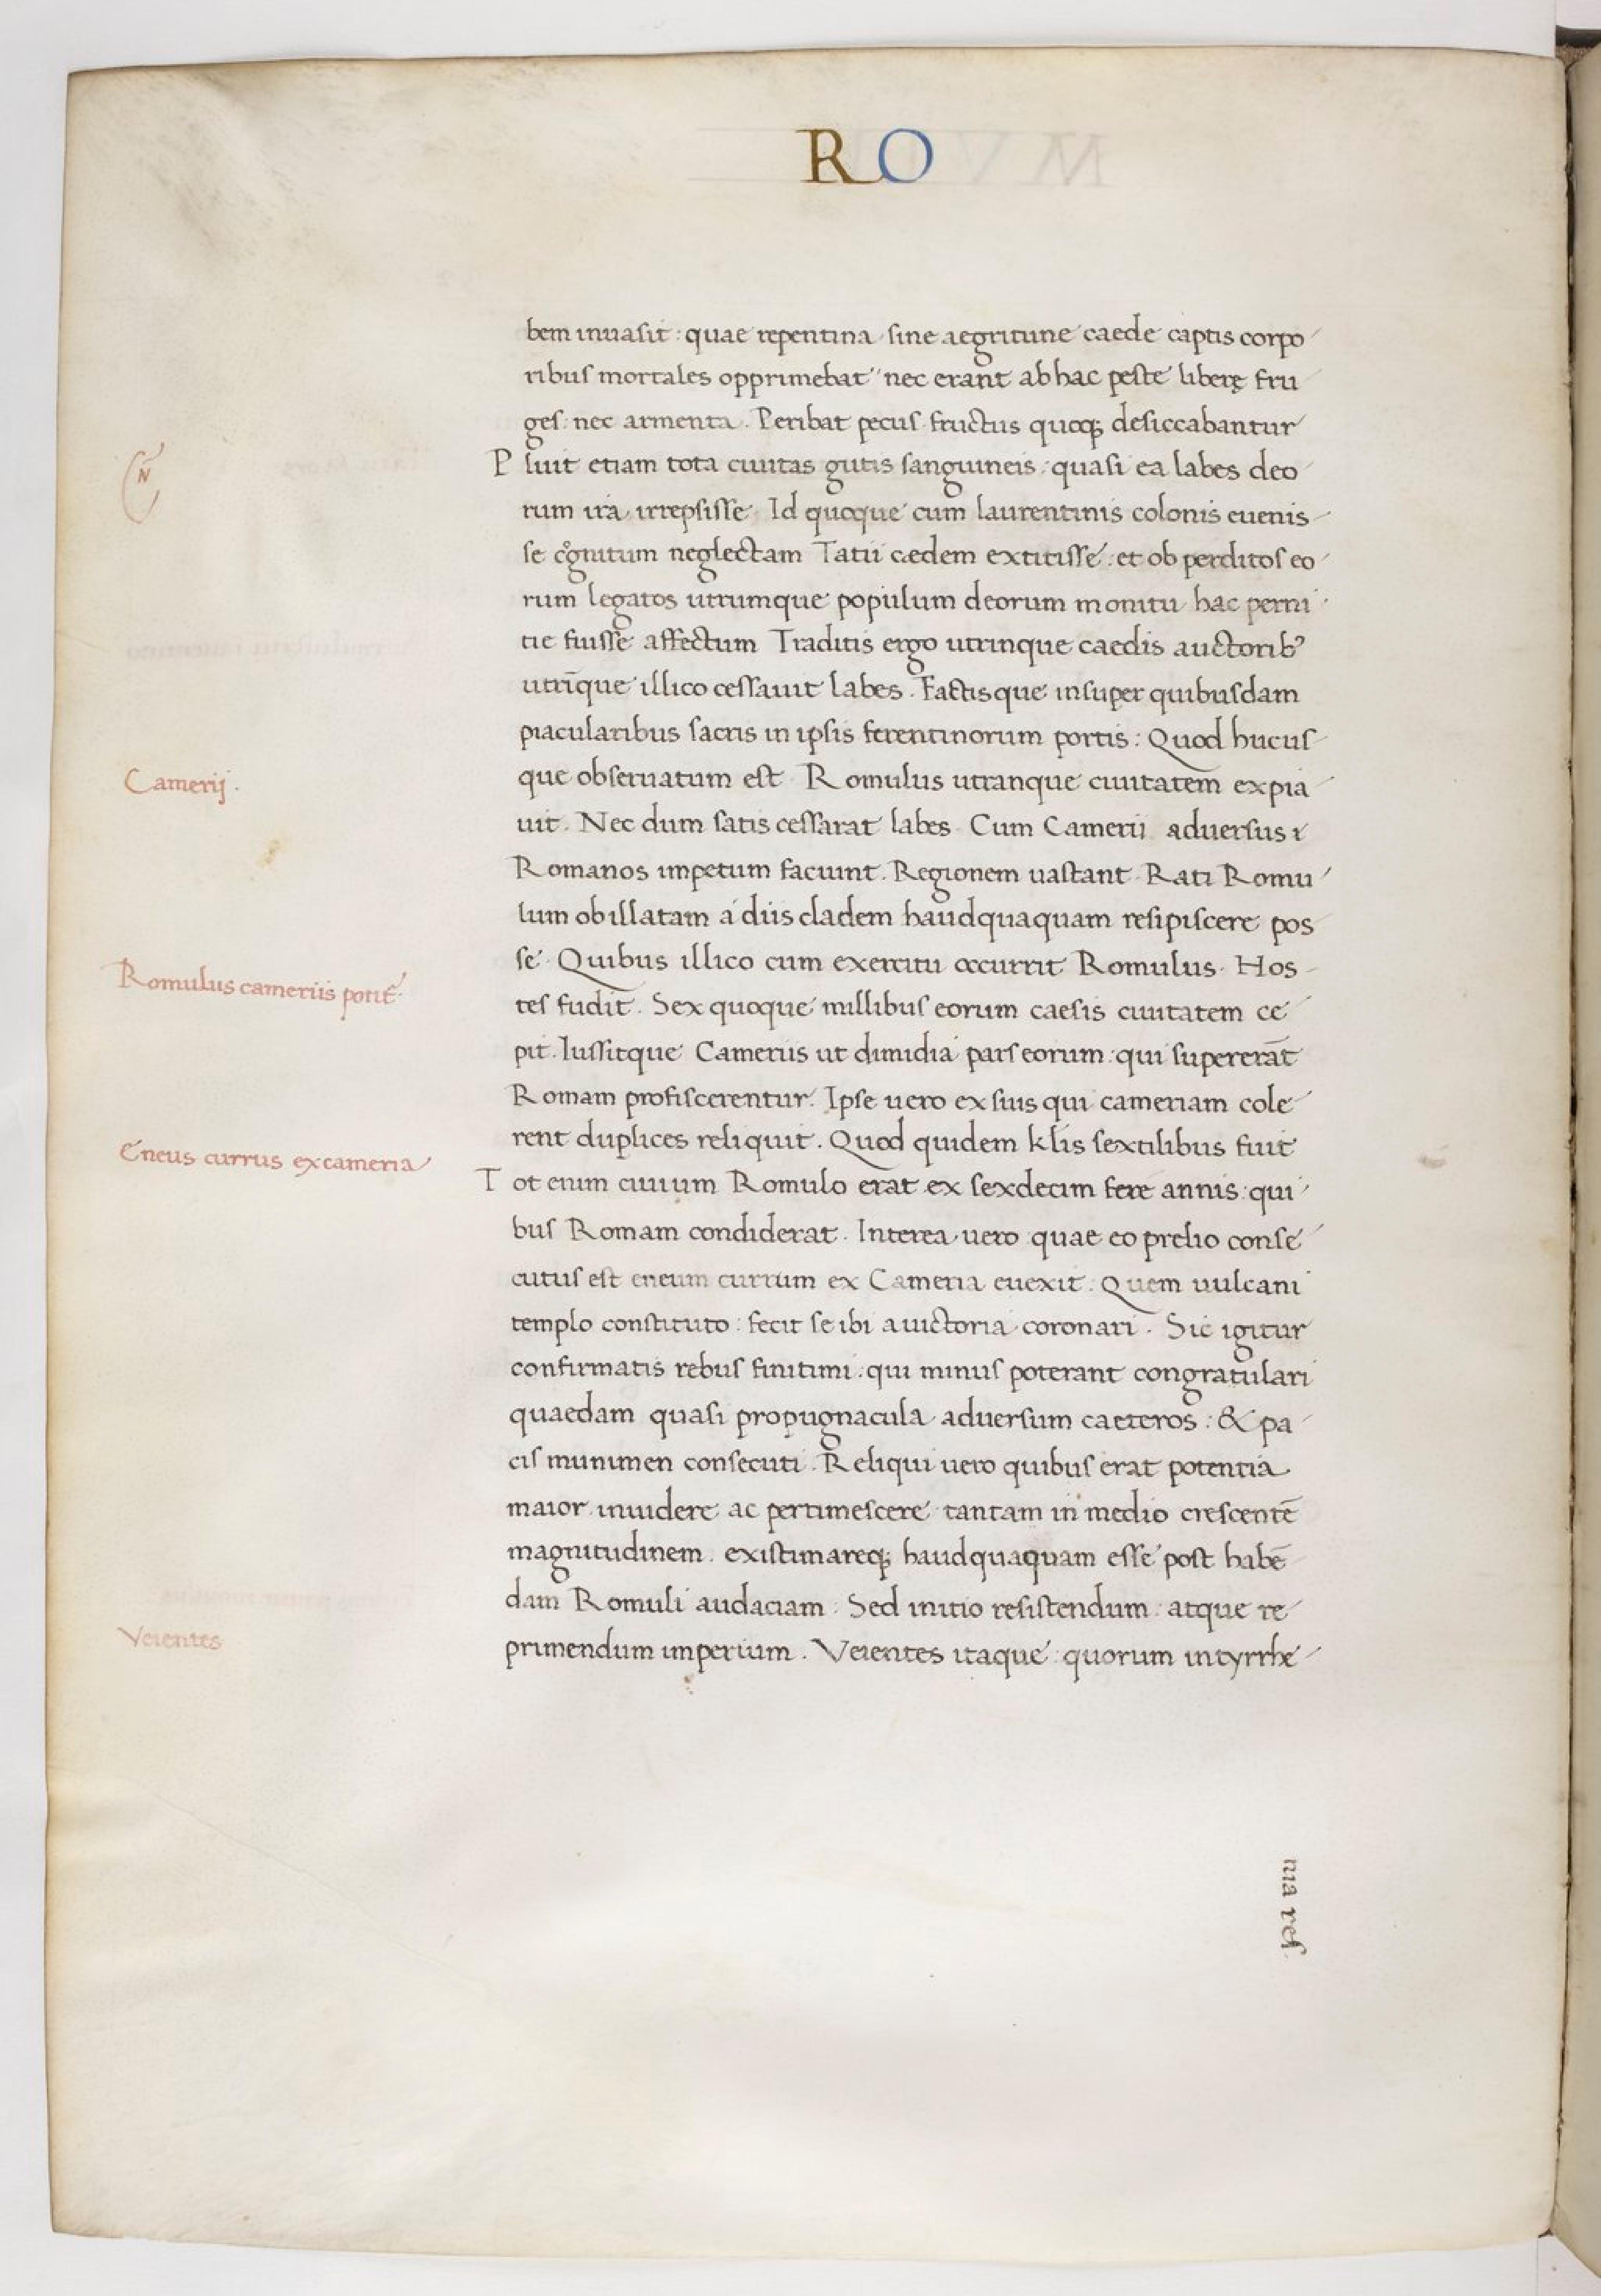 RO
bem inuasit : quae repentina sine aegritune caede captis corpo
ribus mortales opprimebat nec erant ab hac peste liberę fru
ges : nec armenta . Peribat pecus fructus quoq; desiccabantur
N
Pluit etiam tota ciuitas gutis sanguineis : quasi ea labes deo
rum ira irrepsisse . Id quoque cum laurentinis colonis euenis
se cognitum neglectam Tatii cædem extitisse : et ob perditos eo
rum legatos utrumque populum deorum monitu hac perni
tie fuisse affectum Traditis ergo utrinque caedis auctorib9
utrīque illico cessauit labes . Factisque insuper quibusdam
piacularibus sacris in ipsis ferentinorum portis : Quod hucus
Camerij .
que obseruatum est Romulus utranque ciuitatem expia
uit . Nec dum satis cessarat labes . Cum Camerii aduersus
Romanos impetum faciunt . Regionem uastant . Rati Romu
lum ob illatam a diis cladem haudquaquam resipiscere pos
Romulus cameriis potit̄
se . Quibus illico cum exercitu occurrit Romulus . Hos
tes fudit . Sex quoque millibus eorum caesis ciuitatem ce
pit . Iussitque Cameriis ut dimidia pars eorum : qui supererāt
Romam profiscerentur . Ipse uero ex suis qui cameriam cole
Eneus currus ex cameria
rent duplices reliquit . Quod quidem klis sextilibus fuit
Tot enim ciuium Romulo erat ex sexdecim fere annis : qui
bus Romam condiderat . Interea uero quae eo prelio conse
cutus est eneum currum ex Cameria euexit : Quem uulcani
templo constituto : fecit se ibi a uictoria coronari . Sic igitur
confirmatis rebus finitimi : qui minus poterant congratulari
quaedam quasi propugnacula aduersum caeteros : & pa
cis munimen consecuti . Reliqui uero quibus erat potentia
maior inuidere ac pertimescere tantam in medio crescentē
magnitudinem . existimareq; haudquaquam esse post habē
dam Romuli audaciam : Sed initio resistendum : atque re
Veientes
primendum imperium . Veientes itaque : quorum in tyrrhe
nia res